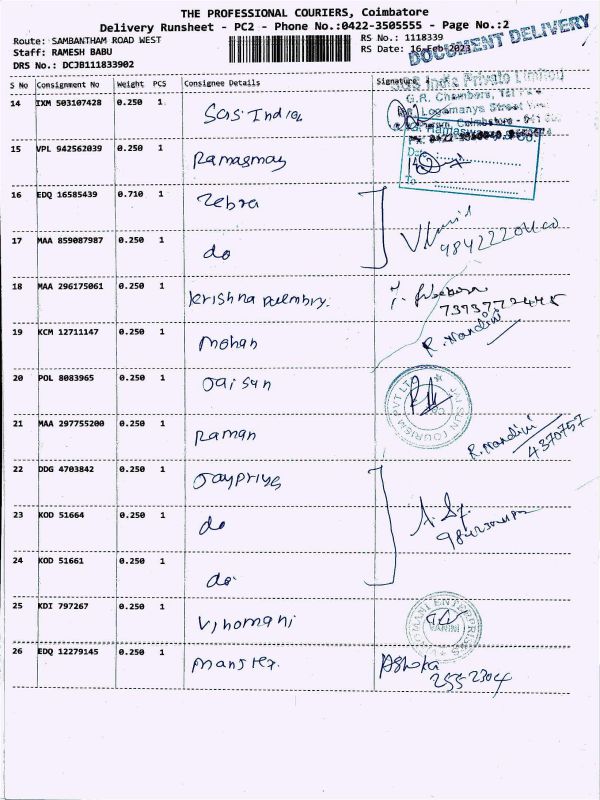 THE PROFESSIONAL COURIERS, Coimbatore
Delivery Runsheet - PC2 - Phone No.:0422-3505555 - Page No.:2
Route: SAMBANTHAM ROAD WEST
RS No.: 1118339
Staff: RAMESH BABU
RS Date: 16-Feb-2023
DRS No.: DCJB111833902
DOCUMENT DELIVERY
S No Consignment No Weight PCS Consignee Details Signature
SGS India Private Limited
G.R. Chambers,
Logamanya Street West
14 IXM 503107428 0.250 1 SGS India
15 VPL 942562039 0.250 1
To
16 EDQ 16585439 0.710 1 Zebra
17 MAA 859087987 0.250 1 do
18 MAA 296175061 0.250 1 Krishna
19 KCM 12711147 0.250 1 Mohan R. Nandini
20 POL 8083965 0.250 1 Jaisun
JAI SUN TOURISM PVT LTD
21 MAA 297755200 0.250 1 Raman R. Nandini
4370757
22 DDG 4703842 0.250 1 Jaypriya
23 KOD 51664 0.250 1 do
24 KOD 51661 0.250 1 do
25 KDI 797267 0.250 1 Vinomani
VINOMANI ENTERPRISES
26 EDQ 12279145 0.250 1 Ashoka
2552304